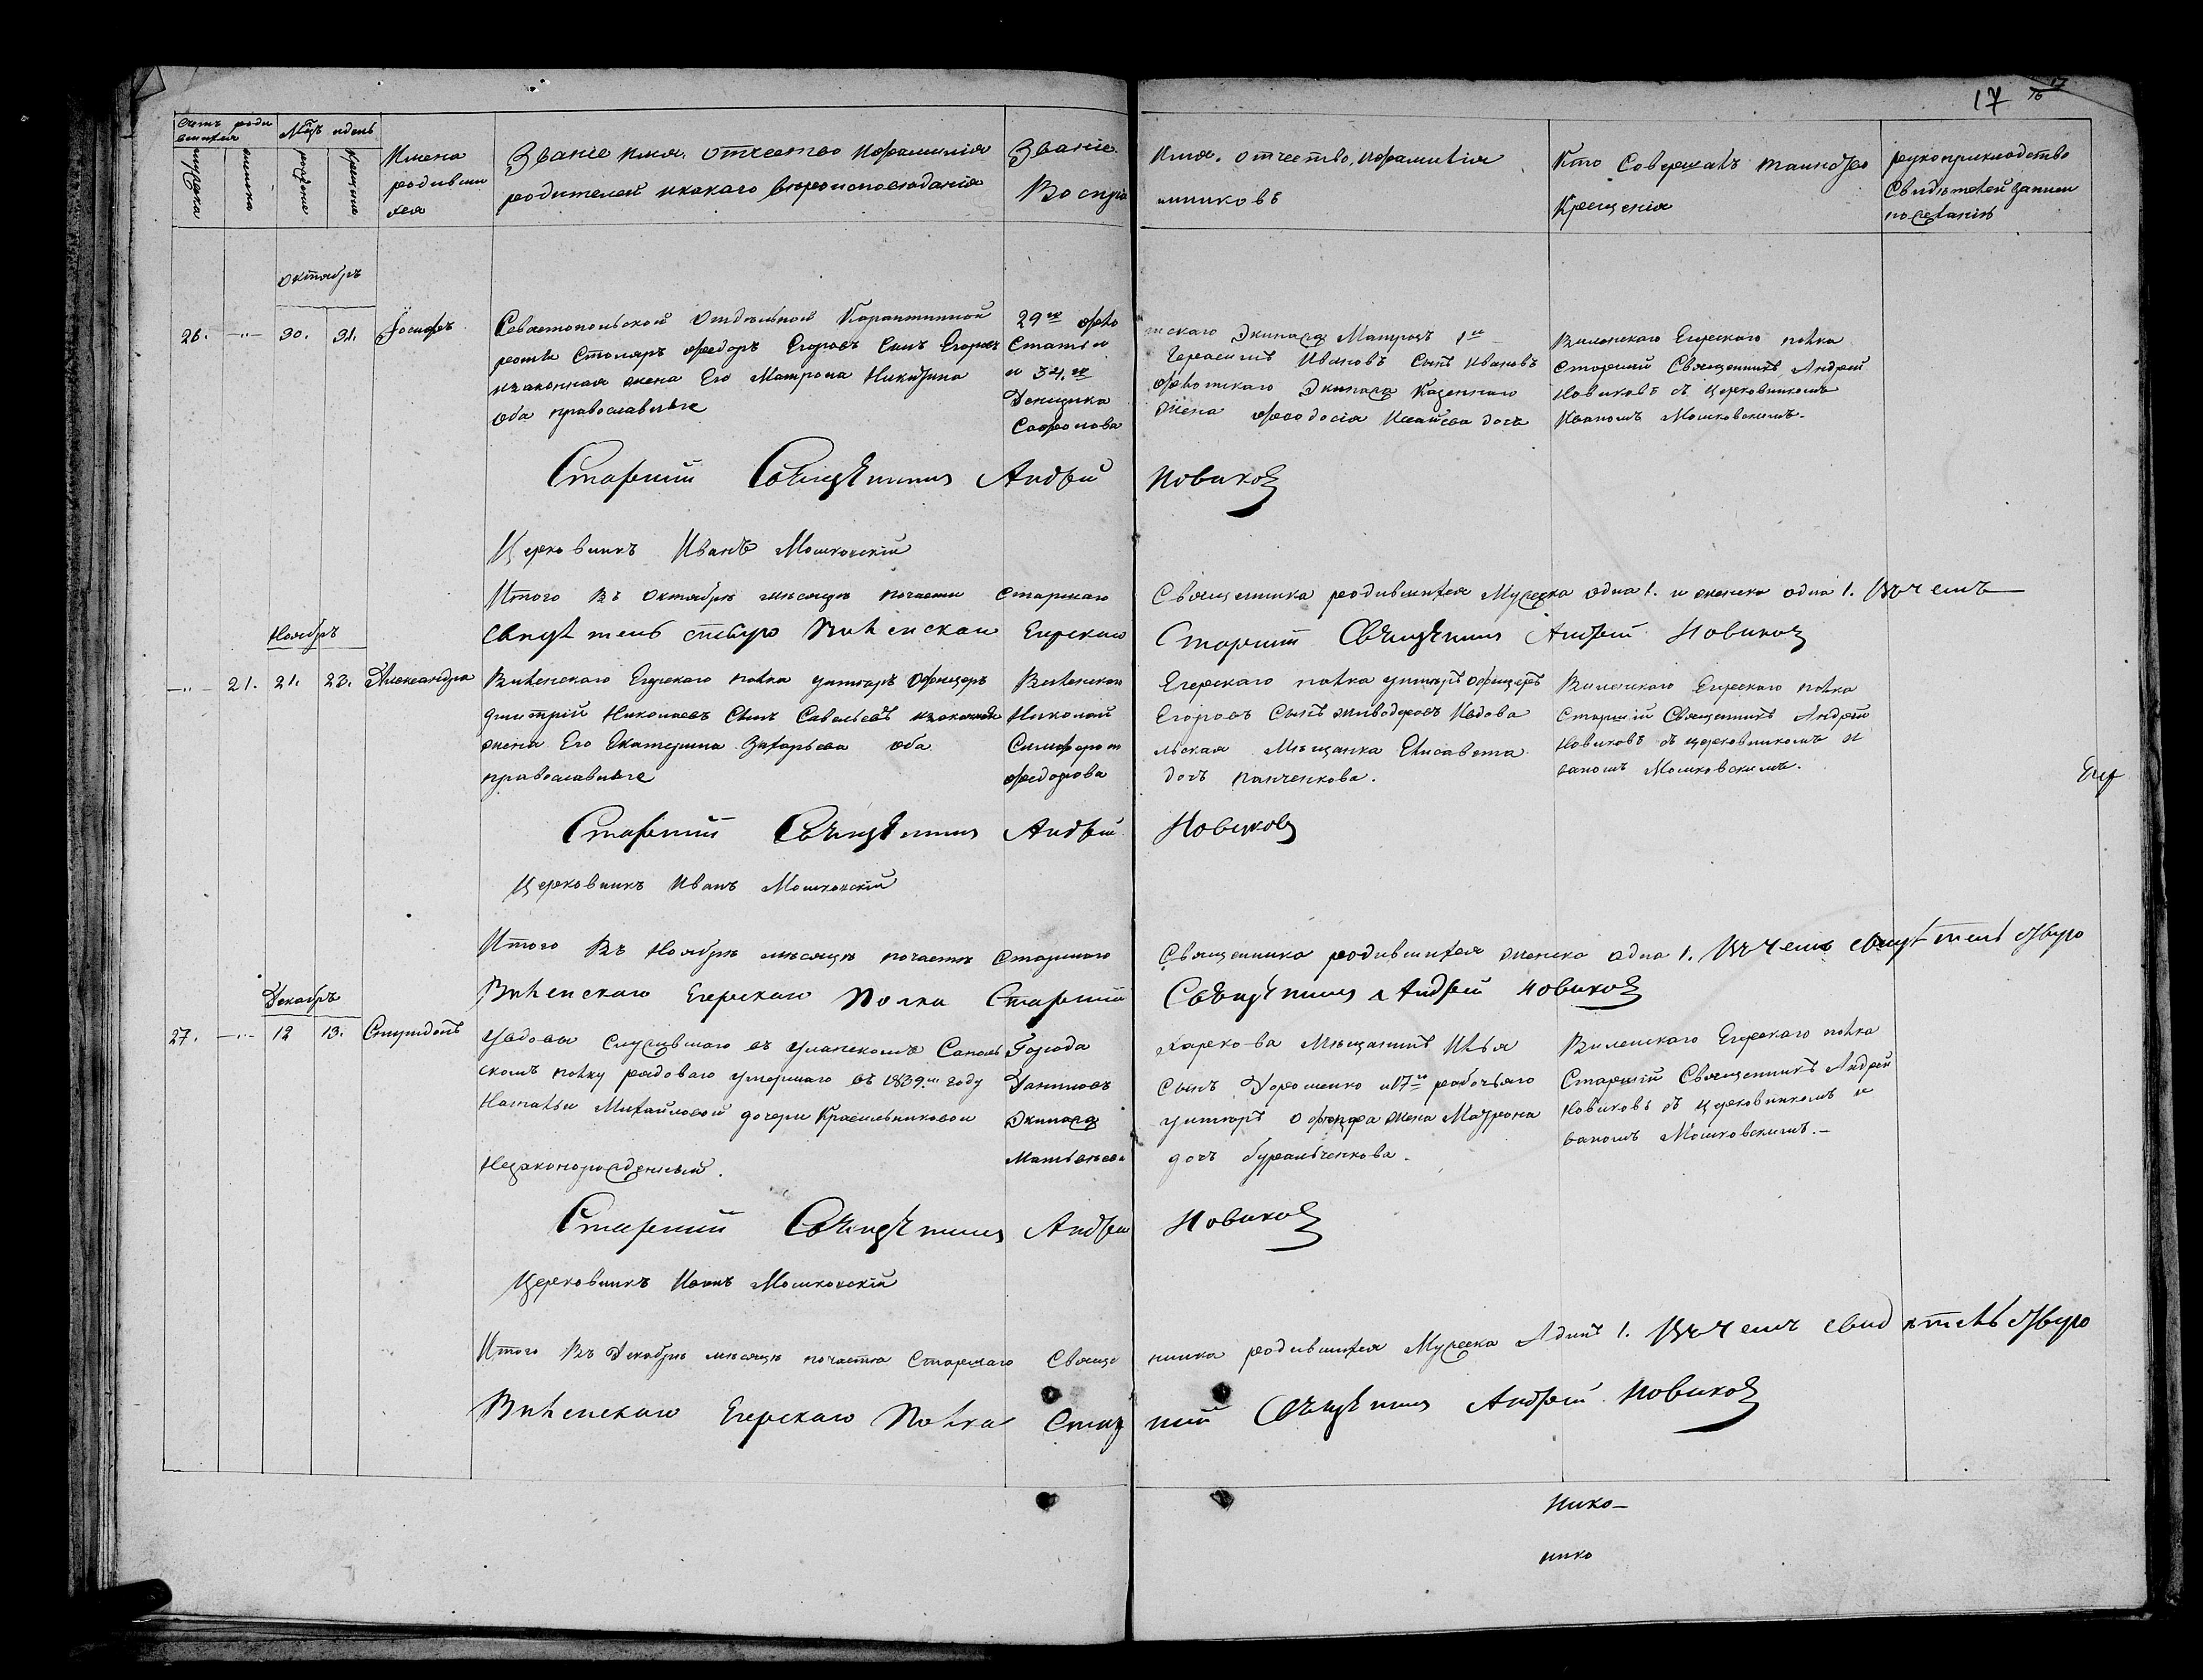 17
Счетъ роди
вшихся
Мѣсяцъ и день
мужеска
женска
рожденіе
крещеніе
Имена
родивши
хся
Званіе имя, отчество и фамилія
родителей и какого вѣроисповѣданія
Званіе
Воспріе
имя, отчество, и фамилія
мниковъ
Кто Совершалъ таинство
Крещенія
рукоприкладство
Свидѣтелей записи
по желанію
Октябрь
26. —..— 30. 31. Іосифъ
Севастопольской Отдѣльной Карантинной
роты Столяръ Федоръ Егоровъ Сынъ Егоровъ
и законная жена Его Матрона Никитина
оба православные
29го фло
Статьи
и 34.го
Денщика
Сафронова
тскаго Экипажа Матрозъ 1й
Герасимъ Ивановъ Сынъ Ивановъ
флотскаго Экипажа Казеннаго
жена Феодосія Исаіева дочь
Виленскаго Егерскаго полка
Старшій Священникъ Андрей
Новиковъ съ церковникомъ
Иваномъ Мошковскимъ.-
Старшій Священникъ Андрей Новиковъ
Церковникъ Иванъ Мошковскій
Итого въ Октябрѣ мѣсяцѣ по части Старшаго Священника родившихся Мужеска одна 1. и женска одна 1. Въ чемъ
свидѣтельствую Виленскаго Егерскаго Старшій Священникъ Андрей Новиковъ
Ноябрь
—..— 21. 21. 23. Александра
Виленскаго Егерскаго полка унтеръ Офицеръ
Дмитрій Николаевъ Сынъ Савельевъ и законная
жена Его Екатерина Захарьева оба
православные
Виленскаго
Николай
Симфероп
Федорова
Егерскаго полка унтеръ офицеръ
Егоровъ Сынъ Живодеровъ Ивдова
льская Мѣщанка Елисавета
дочь Панченкова.
Виленскаго Егерскаго полка
Старшій Священникъ Андрей
Новиковъ съ церковникомъ И
ваномъ Мошковскимъ.
Егер
Старшій Священникъ Андрей Новиковъ
Церковникъ Иванъ Мошковскій
Итого Въ Ноябрѣ мѣсяцѣ по части Старшаго Священника родившихся женска одна 1. Въ чемъ свидѣтельствую
Виленскаго Егерскаго Полка Старшій Священникъ Андрей Новиковъ
Декабрь
27. —..— 12 13. Спиридонъ
Удовы Служившаго въ Уланскомъ
скомъ полку рядоваго умершаго въ 1839.м году
Натальи Михайловой дочери Красильниковой
Незаконорожденный.
Города
Даниловъ
Экипажа
Матвѣева
Харькова Мѣщанинъ Илья
Сынъ Дорошенко и 17го рабочьяго
унтеръ офицера жена Матрона
дочь
Виленскаго Егерскаго полка
Старшій Священникъ Андрей
Новиковъ съ церковникомъ И
ваномъ Мошковскимъ.-
Старшій Священникъ Андрей Новиковъ
Церковникъ Иванъ Мошковскій
Итого Въ Декабрѣ мѣсяцѣ по части Старшаго Священника родившихся Мужеска Адинъ 1. Въ чемъ свидѣтельствую
Виленскаго Егерскаго Полка Старшій Священникъ Андрей Новиковъ
Нико-
нико